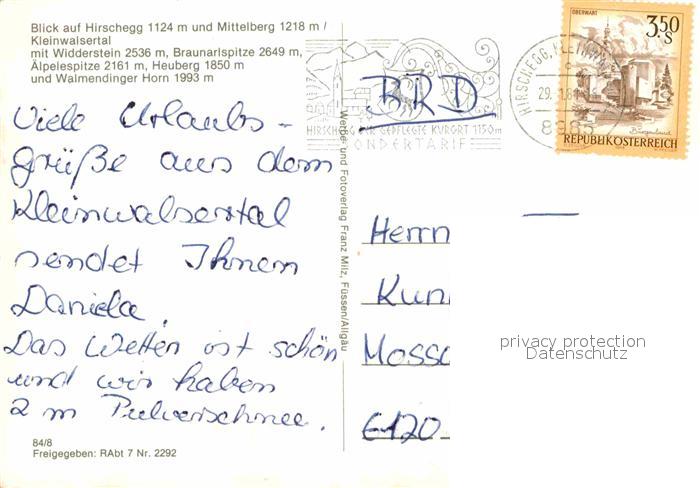 Blick auf Hirschegg 1124 m und Mittelberg 1218 m /
Kleinwalsertal
mit Widderstein 2536 m, Braunarlspitze 2649 m,
Älpelespitze 2161 m, Heuberg 1850 m
und Walmendinger Horn 1993 m
Viele Urlaubs-
grüße aus dem
Kleinwalsertal
sendet Ihnen
Daniela.
Das Wetter ist schön
und wir haben
2 m Pulverschnee.
84/8
Freigegeben: RAbt 7 Nr. 2292
Werbe- und Fotoverlag Franz Milz, Füssen/Allgäu
HIRSCHEGG DER GEPFLEGTE KURORT 1150m
SONDERTARIF
HIRSCHEGG, KLEINW
29. 1.8
8985
OBERWART
3.50
S
Burgenland
REPUBLIK ÖSTERREICH
BRD
Herrn
Kun
Moss
6120
privacy protection
Datenschutz